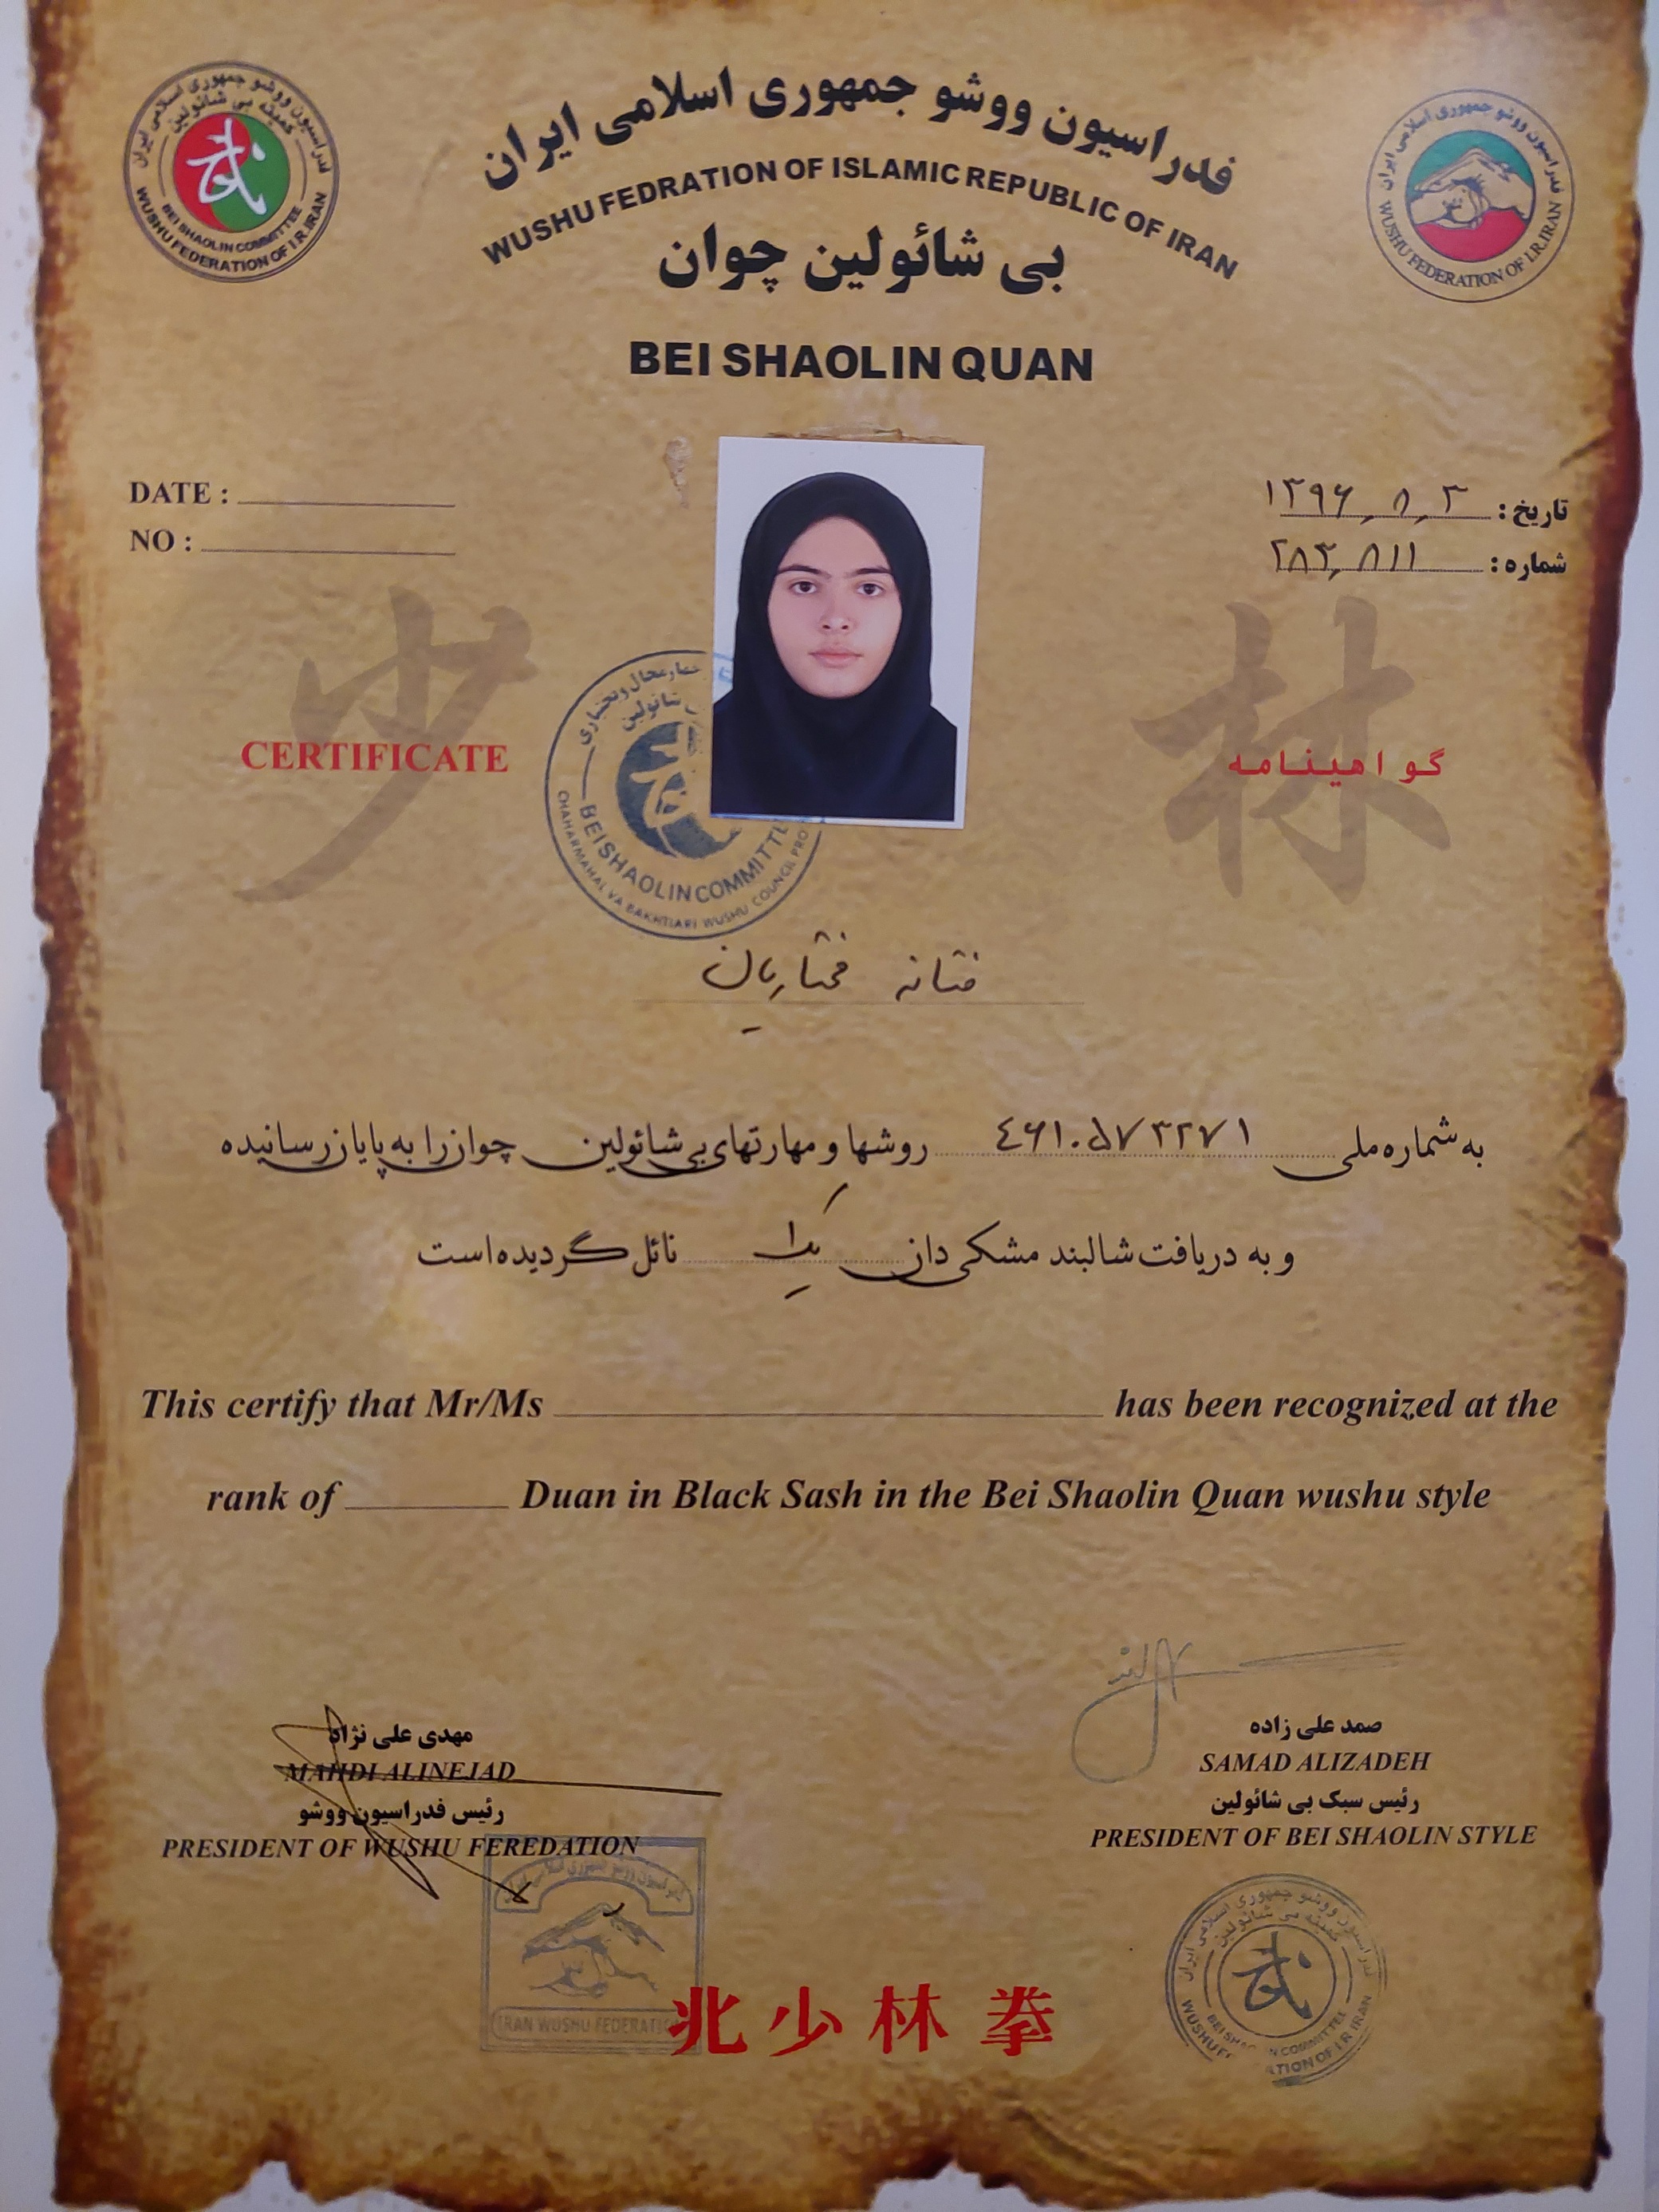 فدراسیون ووشو جمهوری اسلامی ایران
WUSHU FEDRATION OF ISLAMIC REPUBLIC OF IRAN
بی شائولین چوان
BEI SHAOLIN QUAN
فدراسیون ووشو جمهوری اسلامی ایران
کمیته بی شائولین
BEI SHAOLIN COMMITTEE
WUSHU FEDERATION OF I.R.IRAN
فدراسیون ووشو جمهوری اسلامی ایران
WUSHU FEDERATION OF I.R.IRAN
DATE :
NO :
تاریخ: ۱۳۹۶,۸,۳
شماره: ۲۸۳,۸۱۱
少 林
CERTIFICATE
گواهینامه
چهارمحال و بختیاری
شائولین
BEISHAOLIN COMMITTE
CHAHARMAHAL VA BAKHTIARI WUSHU COUNCIL PRO
فتانه مختاریان
به شماره ملی ۴۶۱۰۵۷۳۲۷۱ روشها و مهارتهای بی شائولین چوان را به پایان رسانیده
و به دریافت شالبند مشکی دان یک نائل گردیده است
This certify that Mr/Ms has been recognized at the
rank of Duan in Black Sash in the Bei Shaolin Quan wushu style
صمد علی زاده
SAMAD ALIZADEH
رئیس سبک بی شائولین
PRESIDENT OF BEI SHAOLIN STYLE
مهدی علی نژاد
MAHDI ALINEJAD
رئیس فدراسیون ووشو
PRESIDENT OF WUSHU FEREDATION
فدراسیون ووشو جمهوری اسلامی ایران
IRAN WUSHU FEDERATIO
فدراسیون ووشو جمهوری اسلامی ایران
کمیته بی شائولین
COMMITTEE
北少林拳